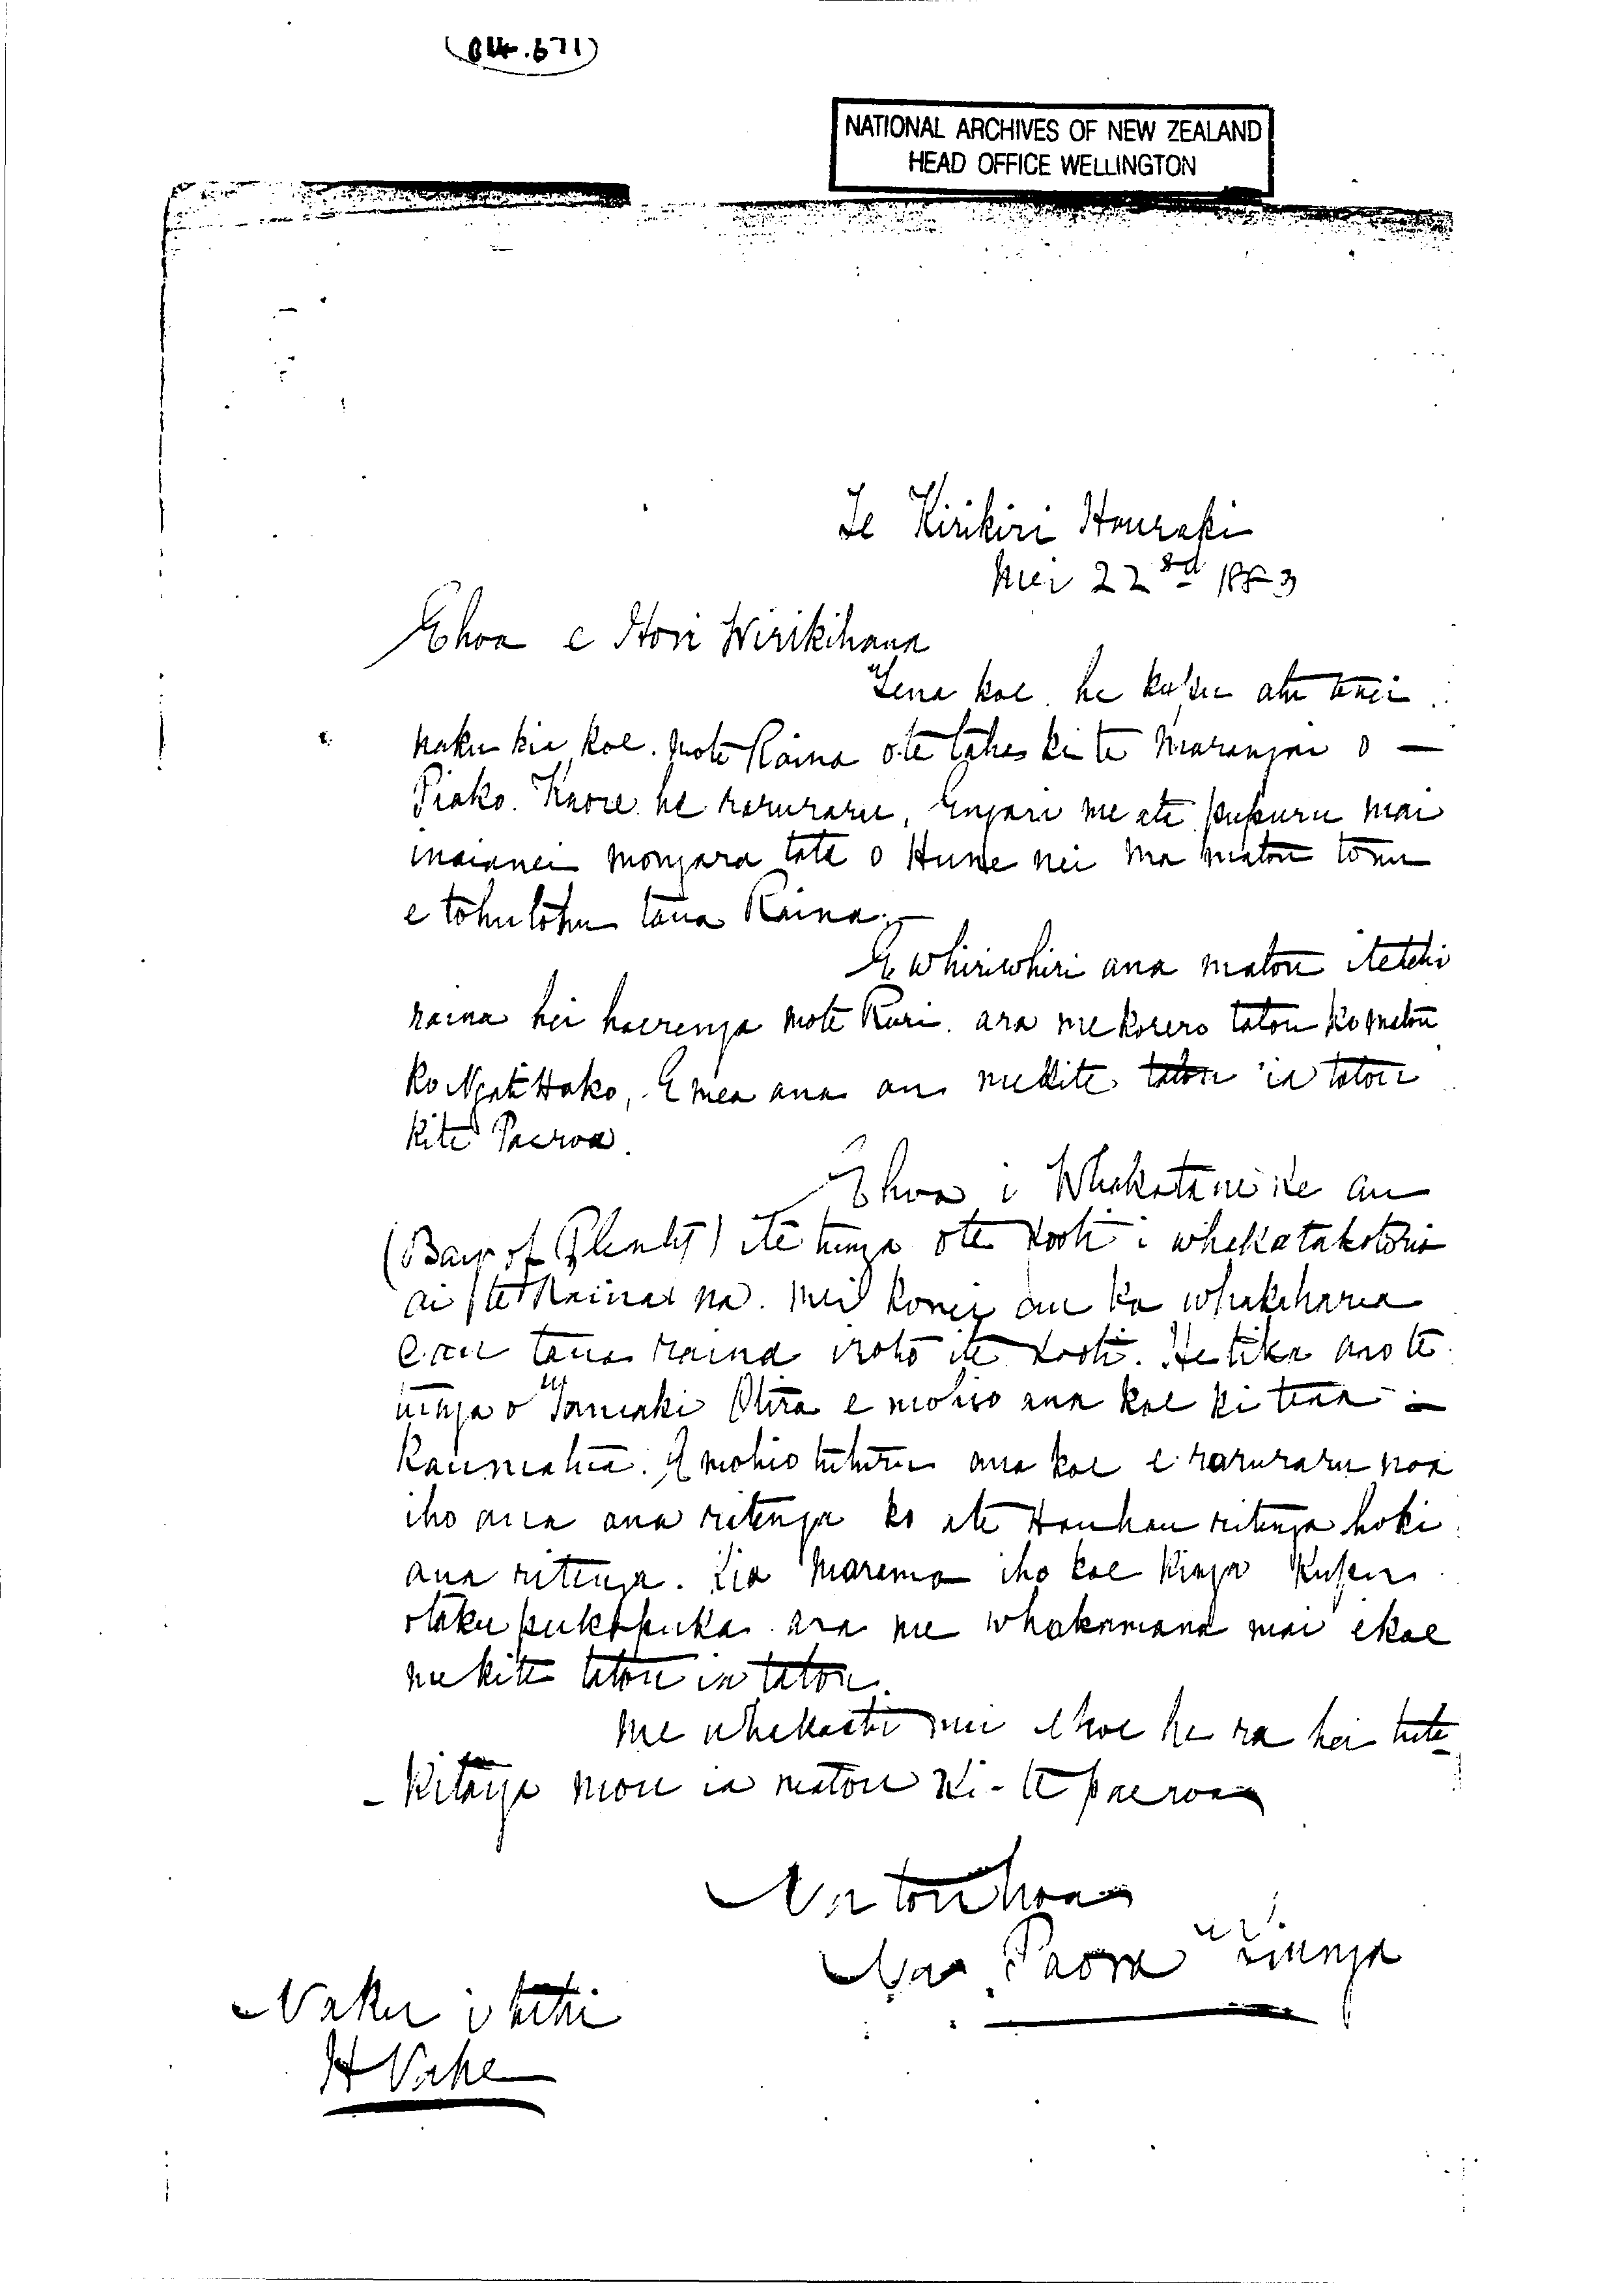 (04.671)
NATIONAL ARCHIVES OF NEW ZEALAND
HEAD OFFICE WELLINGTON
Te Kirikiri Hauraki
Mei 22nd 1883
Ehoa e Hori Wirikihana
Tena koe. he kupu atu tenei
naku kia koe. mote Raina ote taha ki te Marangai o —
Piako. Kaore he raruraru, Engari me ata pupuru mai
inaianei mongara tata o Hune nei ma matou tonu
e tohutohu taua Raina. —
E whiriwhiri ana matou itetehi
raina hei haerenga mote Ruri. ara me korero tatou ko matou
ko Ngati Hako, E mea ana au me kite tatou ia tatou
kite Paeroa.
Ehoa i Whakatane ke au
(Bay of Plenty) ite tunga ote Kooti i whakatakotoria
ai te Raina na. mei konei au ka whakaharea
e au taua raina iroto ite Kooti. He tika ano te
o Tamaki Otira e mohio ana koe ki tena
Kaumatua. E mohio tuturu ana koe e raruraru noa
iho ana ana ritenga ko ata Hauhau ritenga hoki
ana ritenga. Kia Marama iho koe kinga Kupu
otaku pukapuka. ara me whakamana mai ekoe
me kite tatou ia tatou.
Me whakaatu mai ekoe he ra hei tute
- Kitanga mou ia matou Ki-te paeroa
Na tou hoa
Na Paora Tiunga
Naku i tuhi
H Vahe